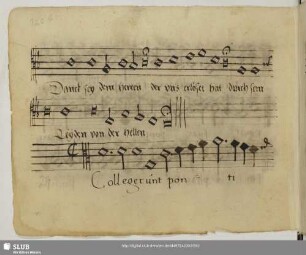 Danck sey dem Herren der uns erlöset hat durch sein
Leyden von der Hellen
Collegerunt pon ti
SLUB